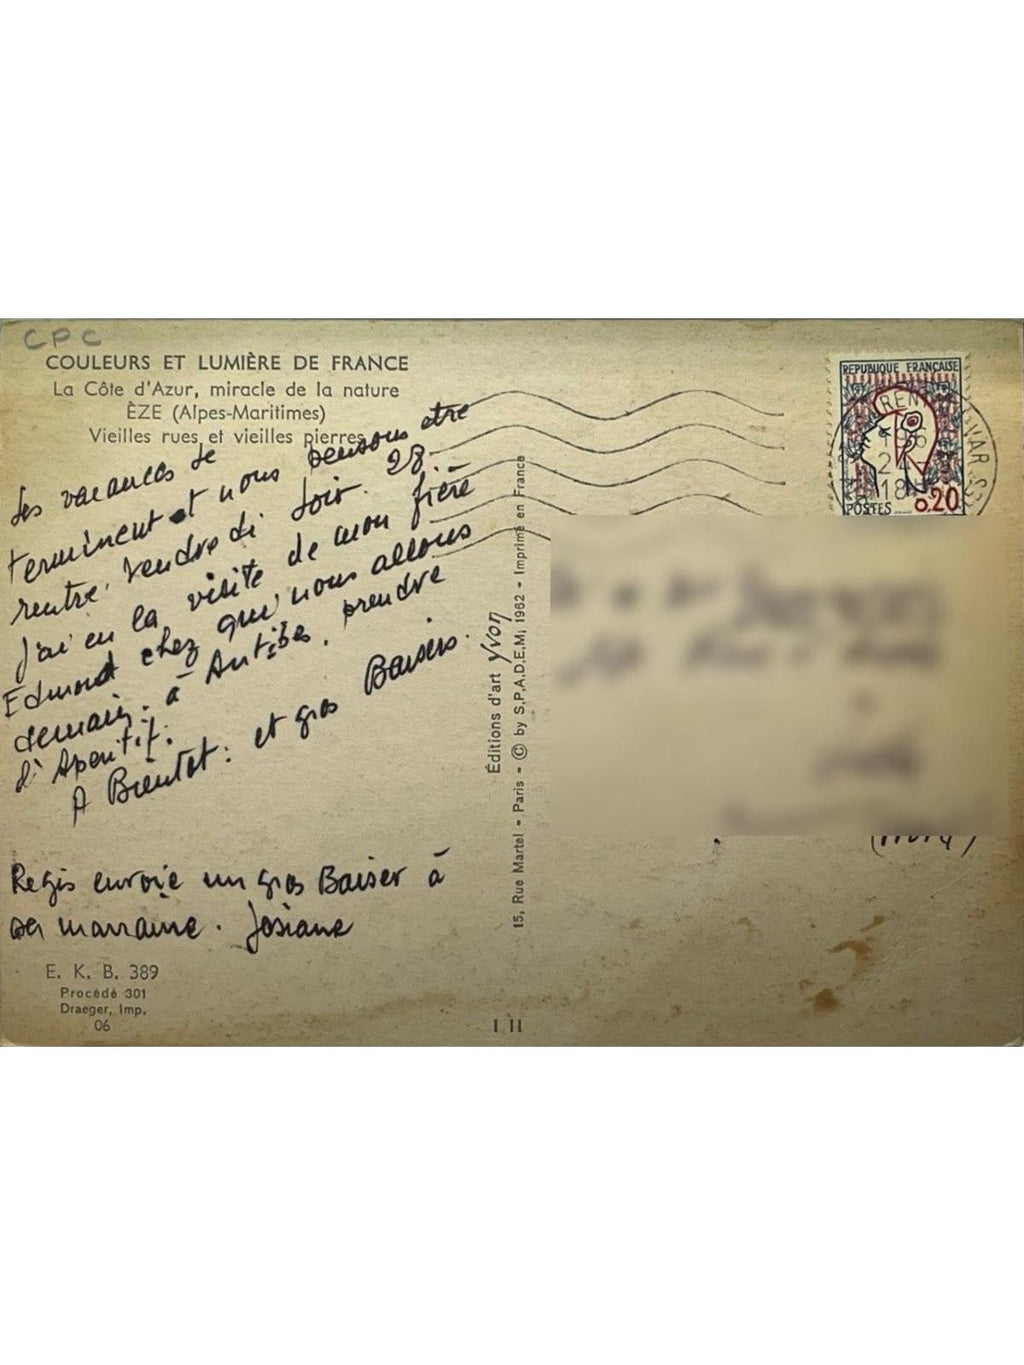 CPC
COULEURS ET LUMIÈRE DE FRANCE
La Côte d'Azur, miracle de la nature
ÈZE (Alpes-Maritimes)
Vieilles rues et vieilles pierres
Les vacances se
terminent et nous pensons etre
rentré vendredi soir. 28.
J'ai eu la visite de mon frère
Edmond chez qui nous allons
demain. à Antibes. prendre
l'Aperitif.
A Bientot. et gros Baisers.
Regis envoie un gros Baiser à
sa marraine. Josiane
E. K. B. 389
Procédé 301
Draeger, Imp.
06
Éditions d'art Yvon
15, Rue Martel - Paris - © by S.P.A.D.E.M. 1962 - Imprimé en France
I II
REPUBLIQUE FRANÇAISE
POSTES
0.20
VAR
18